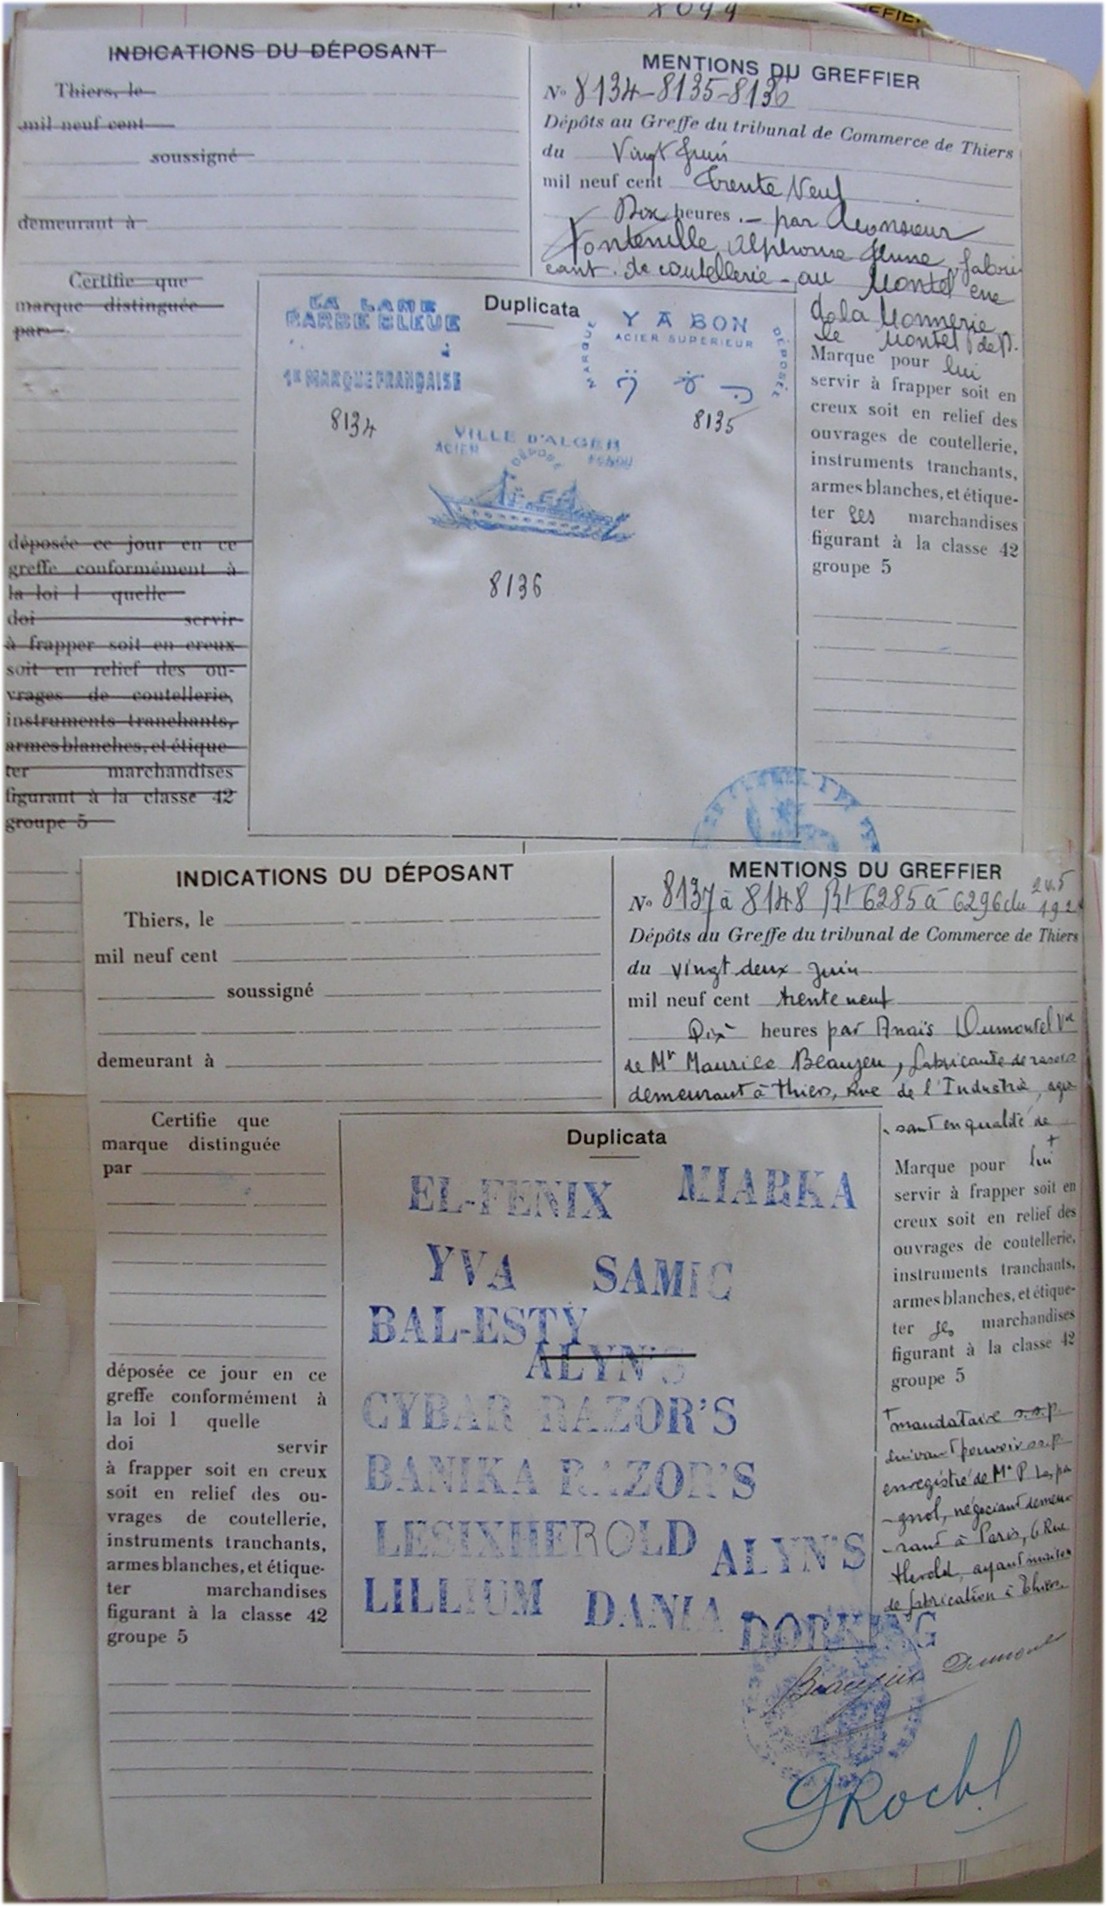 8099
GREFFIER
INDICATIONS DU DÉPOSANT
Thiers, le
mil neuf cent
soussigné
demeurant à
Certifie que
marque distinguée
par
déposée ce jour en ce
greffe conformément à
la loi l quelle
doi servir
à frapper soit en creux
soit en relief des ou-
vrages de coutellerie,
instruments tranchants,
armes blanches, et étique-
ter marchandises
figurant à la classe 42
groupe 5
MENTIONS DU GREFFIER
No 8134-8135-8136
Dépôts au Greffe du tribunal de Commerce de Thiers
du Vingt Juin
mil neuf cent Trente Neuf
Dix heures .- par Monsieur
Fontenille Alphonse Jeune, fabri-
cant de coutellerie - au Montel cne
de la Monnerie
le Montel
Marque pour lui
servir à frapper soit en
creux soit en relief des
ouvrages de coutellerie,
instruments tranchants,
armes blanches, et étique-
ter ses marchandises
figurant à la classe 42
groupe 5
Duplicata
LA LAME
BARBE BLEUE
1re MARQUE FRANÇAISE
8134
Y A BON
ACIER SUPERIEUR
MARQUE DÉPOSÉE
8135
VILLE D'ALGER
ACIER DÉPOSÉ FONDU
8136
INDICATIONS DU DÉPOSANT
Thiers, le
mil neuf cent
soussigné
demeurant à
Certifie que
marque distinguée
par
déposée ce jour en ce
greffe conformément à
la loi l quelle
doi servir
à frapper soit en creux
soit en relief des ou-
vrages de coutellerie,
instruments tranchants,
armes blanches, et étique-
ter marchandises
figurant à la classe 42
groupe 5
MENTIONS DU GREFFIER
No 8137 à 8148 Rt 6285 à 6296 du
Dépôts du Greffe du tribunal de Commerce de Thiers
du vingt deux Juin
mil neuf cent trente neuf
Dix heures par Anaïs Dumontel Vve
de Mr Maurice Beaujeu, fabricante de rasoirs
demeurant à Thiers, Rue de l'Industrie, agis
-sant en qualité de
Marque pour lui +
servir à frapper soit en
creux soit en relief des
ouvrages de coutellerie,
instruments tranchants,
armes blanches, et étique-
ter ses marchandises
figurant à la classe 42
groupe 5
+ mandataire s.s.p.
suivant pouvoir s.s.p
enregistré de Mr P. Lespa
-gnol, négociant demeu-
-rant à Paris, 6 Rue
Herold, ayant maison
de fabrication à Thiers
Duplicata
EL-FENIX MIARKA
YVA SAMIC
BAL-ESTY
ALYN'S
CYBAR RAZOR'S
BANIKA RAZOR'S
LESIXHEROLD ALYN'S
LILLIUM DANIA DORKING
Beaujeu Dumontel
GRochl